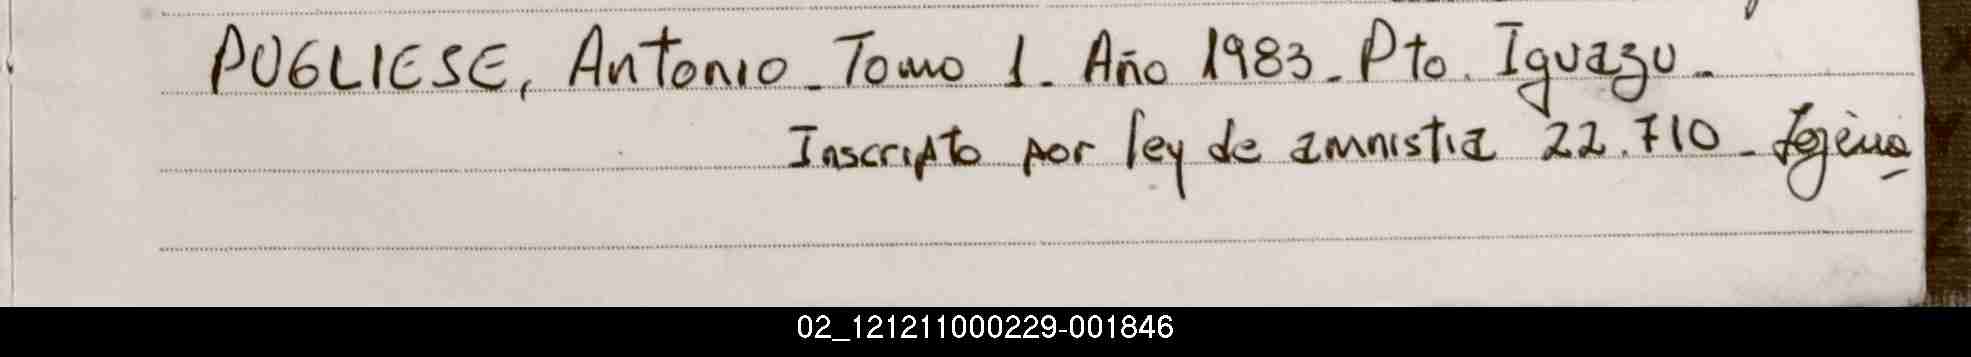 PUGLIESE, Antonio - Tomo 1 - Año 1983 - Pto. Iguazu -
Inscripto por ley de amnistia 22.710 -
02_121211000229-001846